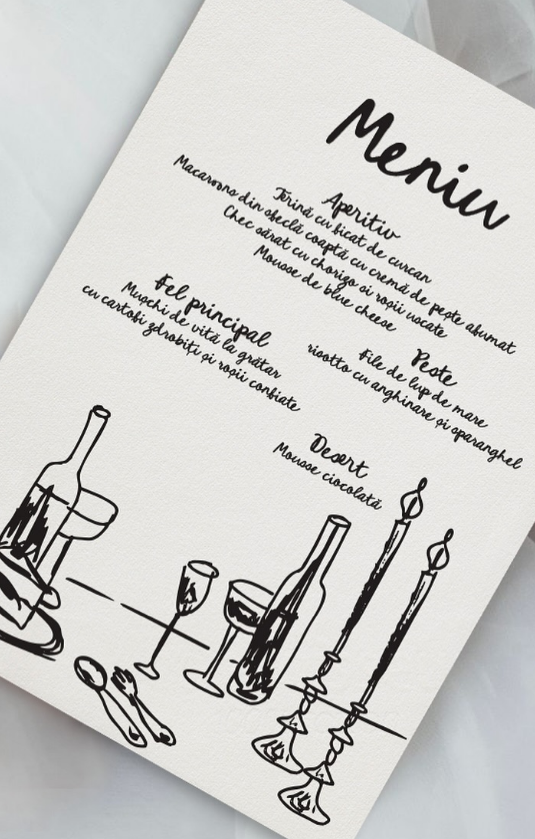 Meniu
Aperitiv
Terină cu ficat de curcan
Macaroons din sfeclă coaptă cu cremă de pește afumat
Chec sărat cu chorizo si roșii uscate
Mousse de blue cheese
Fel principal
Mușchi de vită la grătar
cu cartofi zdrobiți și roșii confiate
Peste
File de lup de mare
risotto cu anghinare și sparanghel
Desert
Mousse ciocolată